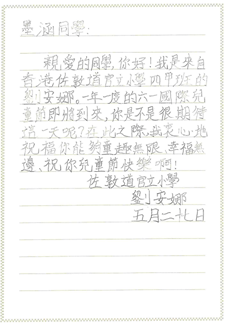 墨涵同學：
親愛的同學，你好！我是來自
香港佐敦道官立小學四甲班的
劉安娜。一年一度的六一國際兒
童節即將到來，你是不是很期待
這一天呢？在此之際，我衷心地
祝福你能夠童趣無限、幸福無
邊、祝你兒童節快樂啊！
佐敦道官立小學
劉安娜
五月二十七日